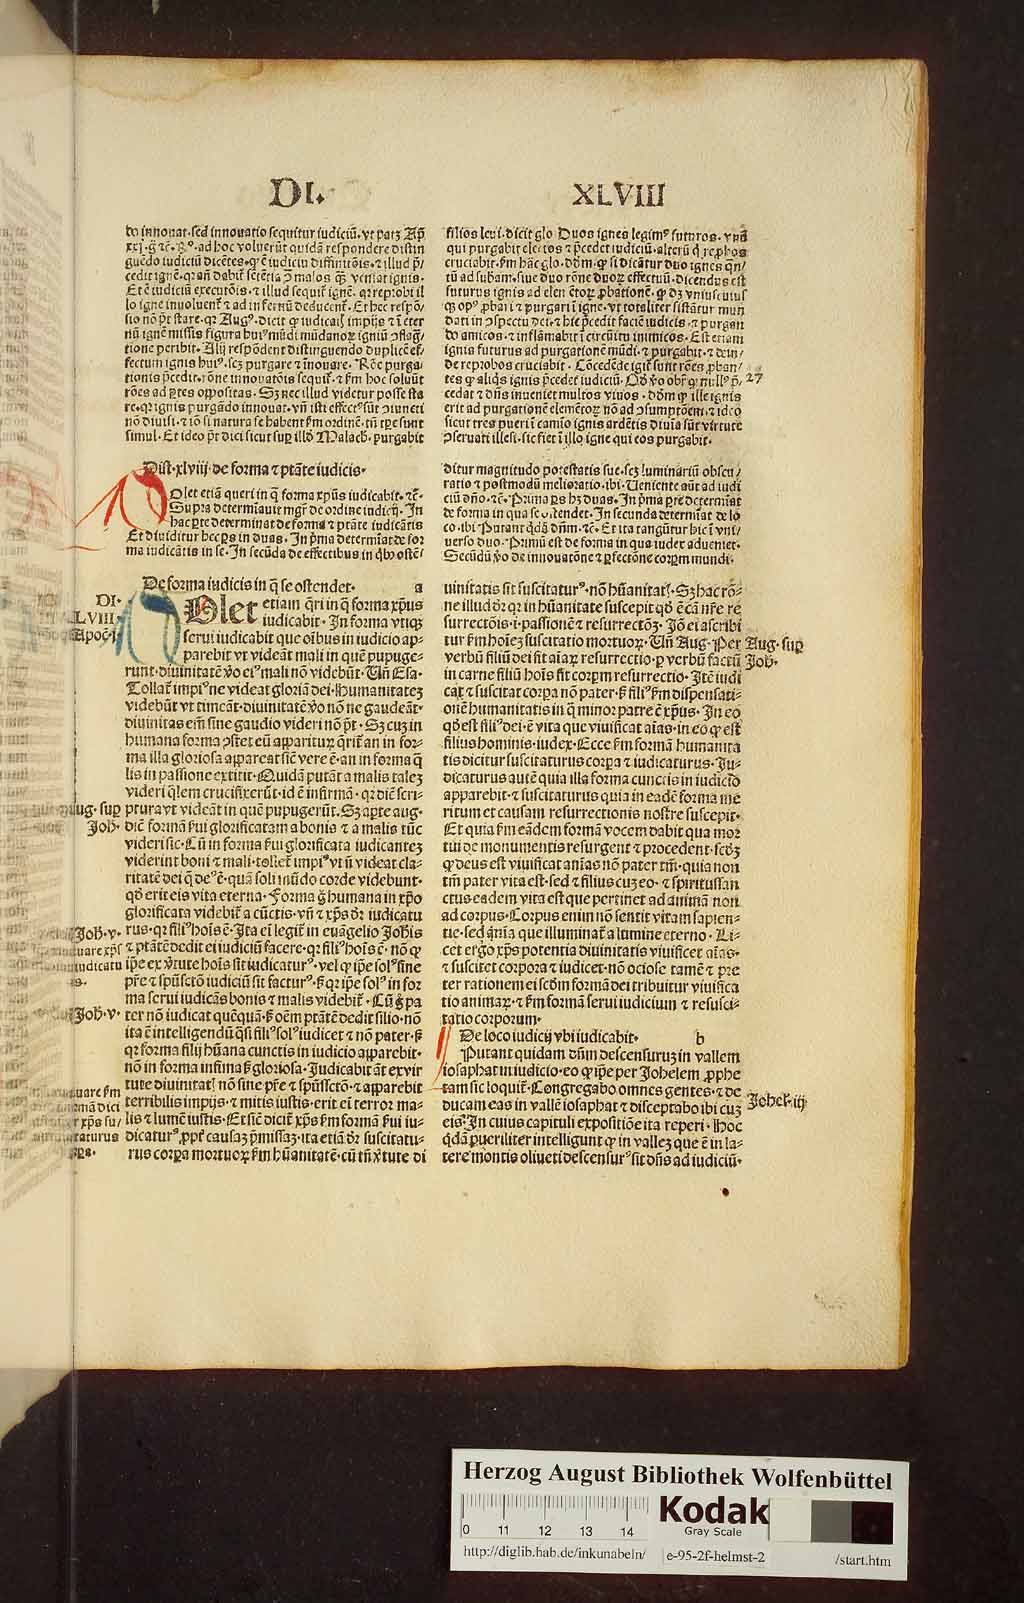 DI. XLVIII
do innouat. sed innouatio sequitur iudiciū. vt patꝫ Ap̄
guēdo iudiciū dicētes. ꝙ ē iudiciū diffinitōis. ⁊ illud p̄
cedit ignē. qꝛ an̄ dabit̄ sētētia ꝯ malos q̄ꝫ veniat ignis.
Et ē iudiciū executōis. ⁊ illud sequit̄ ignē. qꝛ reprobi il
lo igne inuoluent̄ ⁊ ad infernū deducent̄. Et hec respō/
sio nō p̄t stare. qꝛ Augꝰ. dicit ꝙ iudicatꝭ impijs ⁊ ī eter
nū ignē missis figura huiꝰ mūdi mūdanoꝝ igniū ꝯflaḡ/
tione peribit. Alij respōdent distinguendo duplicē ef/
fectum ignis huiꝰ. scꝫ purgare ⁊ īnouare. Rōe purga/
tionis p̄cedit. rōne innouatōis sequit̄. ⁊ ẜm hoc soluūt
rōes ad ꝑtes oppositas. Sꝫ nec illud videtur posse sta
re. qꝛ ignis purgādo innouat. vn̄ isti effectꝰ sūt ꝯiuncti
nō diuisi. ⁊ iō si natura se habent ẜm ordinē. tn̄ tꝑe sunt
simul. Et ideo p̄t dici sicut suꝑ illd̓ Malach. purgabit
filios leui. dicit glo. Duos ignes legimꝰ futuros. vnū
qui purgabit electos ⁊ p̄cedet iudiciū. alterū q̇ reprobos
cruciabit. ẜm hāc glo. dōm. ꝙ si dicatur duo ignes qn̄/
tū ad subām. siue duo rōne duoꝝ effectuū. Dicendus est
futurus ignis ad elementoꝝ ꝓbationē. ꝙ dꝫ vniuscuiꝰ
qꝫ opꝰ ꝓbari ⁊ purgari ī igne. vt totaliter sistātur mun
dati in ꝯspectu dei. ⁊ hic p̄cedit faciē iudicis. ⁊ purgan
do amicos. ⁊ inflāmabit ī circūitu inimicos. Est etiam
ignis futurus ad purgationē mūdi. ⁊ purgabit. ⁊ dein/
de reprobos cruciabit. Cōcedēde igit̄ sunt rōes ꝓban/
tes ꝙ aliqͥs ignis p̄cedet iudiciū. Qd̓ v̓o obr̄ ꝙ nullꝰ p̄/
27
cedat ⁊ dn̄s inueniet multos viuos. dōm ꝙ ille ignis
erit ad purgationē elemētoꝝ nō ad ꝯsumptōem. ⁊ ideo
sicut tres pueri ī camīo ignis ardētis diuīa sūt virtute
ꝯseruati illesi. sic fiet ī illo igne qui eos purgabit.
Dist. xlviij. de forma ⁊ ptāte iudicis.
Solet etiā queri in q̄ forma xp̄us iudicabit. ⁊c̄.
Supra determīauit mgr̄ de ordine iudicij. In
hac ꝑte determinat de forma ⁊ ptāte iudicātis
Et diuiditur hec ꝑs in duas. In p̄ma determīat de for
ma iudicātis in se. In secūda de effectibus in qͥbꝰ ostē/
ditur magnitudo potestatis sue. scꝫ luminariū obscu/
ratio ⁊ postmodū melioratio. ibi. Ueniente aūt ad iudi
ciū dn̄o. ⁊c̄. Prima ꝑs hꝫ duas. In p̄ma ꝑte determīat
de forma in qua se ostendet. In secunda determīat de lo
co. ibi Putant qͥdā dn̄m. ⁊c̄. Et ita tangūtur hic ī vni/
uerso duo. Primū est de forma in qua iudex adueniet.
Secūdū v̓o de innouatōne ⁊ ꝑfectōne corꝑm mundi.
De forma iudicis in q̄ se ostendet. a
DI.
LVIII.
Apoc̄. j.
Solet etiam q̄ri in q̄ forma xp̄us
iudicabit. In forma vtiqꝫ
serui iudicabit que oībus in iudicio ap-
parebit vt videāt mali in quē pupuge-
runt. diuinitatē v̓o eiꝰ mali nō videbūt. Un̄ Esa.
Tollat̄ impiꝰ ne videat gloriā dei. Humanitateꝫ
videbūt vt timeāt. diuinitatē v̓o nō ne gaudeāt.
diuinitas em̄ sine gaudio videri nō p̄t. Sꝫ cuꝫ in
humana forma ꝯstet eū appariturꝫ q̄rit̄ an in for-
ma illa gloriosa appareat sic̄ vere ē. an in forma q̄
lis in passione extitit. Quidā putāt a malis taleꝫ
videri q̄lem crucifixerūt. id ē infirmā. qꝛ dic̄ scri-
ptura vt videāt in quē pupugerūt. Sꝫ aꝑte aug.
Aug. suꝑ
Joh̓.
dic̄ formā ẜui glorificatam a bonis ⁊ a malis tūc
videri sic. Cū in forma ẜui glorificata iudicanteꝫ
viderint boni ⁊ mali. tollet̄ impiꝰ vt n̄ videat cla-
ritatē dei q̄ deꝰ ē. quā soli mūdo corde videbunt.
qd̓ erit eis vita eterna. Forma g̊ humana in xp̄o
glorificata videbit̄ a cūctis. vn̄ ⁊ xp̄s dr̄ iudicatu
Joh̓. v.
rus. qꝛ filiꝰ hoīs ē. Ita em̄ legit̄ in euāgelio Joh̓is
⁊ ptātē dedit ei iudiciū facere. qꝛ filiꝰ hoīs ē. nō ꝙ
ip̄e ex v̓tute hoīs sit iudicaturꝰ. vel ꝙ ip̄e solꝰ sine
pr̄e ⁊ spūsctō iudiciū sit facturꝰ. ẜ qꝛ ip̄e solꝰ in for
ma serui iudicās bonis ⁊ malis videbit̄. Cū g̊ pa
Joh̓. v.
ter nō iudicat quēquā. ẜ oēm ptātē dedit filio. nō
ita ē intelligendū q̄si filiꝰ solꝰ iudicet ⁊ nō pater. ẜ
qꝛ forma filij hūana cunctis in iudicio apparebit.
nō in forma infima ẜ gloriosa. Judicabit āt ex vir
tute diuinitatꝭ nō sine pr̄e ⁊ spūssctō. ⁊ apparebit
terribilis impijs. ⁊ mitis iustis. erit em̄ terror ma-
lis ⁊ lumē iustis. Et sic̄ dicit̄ xp̄s ẜm formā ẜui iu-
dicaturꝰ. ꝓpt̓ causaꝫ p̄missaꝫ. ita etiā dr̄ suscitatu-
rus corꝑa mortuoꝝ ẜm hūanitatē. cū tn̄ v̓tute di
uinitatis sit suscitaturꝰ. nō hūanitatꝭ. Sꝫ hac rō-
ne illud dr̄ qꝛ in hūanitate suscepit qd̓ ē cā nr̄e re
surrectōis. i. passionē ⁊ resurrectōꝫ. Iō ei ascribi
tur ẜm hoīeꝫ suscitatio mortuoꝝ. Un̄ Aug. Per
Aug. suꝑ
Joh̓.
verbū filiū dei fit aīaꝝ resurrectio. ꝑ verbū factū
in carne filiū hoīs fit corꝑm resurrectio. Itē iudi
cat ⁊ suscitat corꝑa nō pater. ẜ filiꝰ ẜm dispensati-
onē humanitatis in q̄ minor patre ē xp̄us. In eo
qd̓ est filiꝰ dei. ē vita que viuificat aīas. in eo ꝙ est
filius hominis. iudex. Ecce ẜm formā humanita
tis dicitur suscitaturus corꝑa ⁊ iudicaturus. Ju-
dicaturus autē quia illa forma cunctis in iudicio
apparebit. ⁊ suscitaturus quia in eadē forma me
ritum et causam resurrectionis nostre suscepit.
Et quia ẜm eādem formā vocem dabit qua mor
tui de monumentis resurgent ⁊ procedent. ẜcd̓ꝫ
ꝙ deus est viuificat aīas nō pater tm̄. quia non
tm̄ pater vita est. sed ⁊ filius cuꝫ eo. ⁊ spiritussan
ctus eadem vita est que pertinet ad animā non
ad corpus. Corpus enim nō sentit vitam sapien-
tie. sed aīa que illuminat̄ a lumine eterno. Li-
cet ergo xp̄s potentia diuinitatis viuificet aīas.
⁊ suscitet corpora ⁊ iudicet. nō ociose tamē ⁊ pre
ter rationem ei scd̓m formā dei tribuitur viuifica
tio animaꝝ. ⁊ ẜm formā serui iudicium ⁊ resusci-
tatio corporum.
De loco iudicij vbi iudicabit. b
Putant quidam dn̄m descensuruꝫ in vallem
iosaphat in iudicio. eo ꝙ ip̄e per Johelem ꝓphe
tam sic loquit̄. Congregabo omnes gentes. ⁊ de
Johel. iij.
ducam eas in vallē iosaphat ⁊ disceptabo ibi cuꝫ
eis. In cuius capituli expositiōe ita reperi. Hoc
qͥdā pueriliter intelligunt ꝙ in valleꝫ que ē in la-
tere montis oliueti descensurꝰ sit dn̄s ad iudiciū.
Herzog August Bibliothek Wolfenbüttel
0 11 12 13 14
Kodak
Gray Scale
http://diglib.hab.de/inkunabeln/ e-95-2f-helmst-2 /start.htm